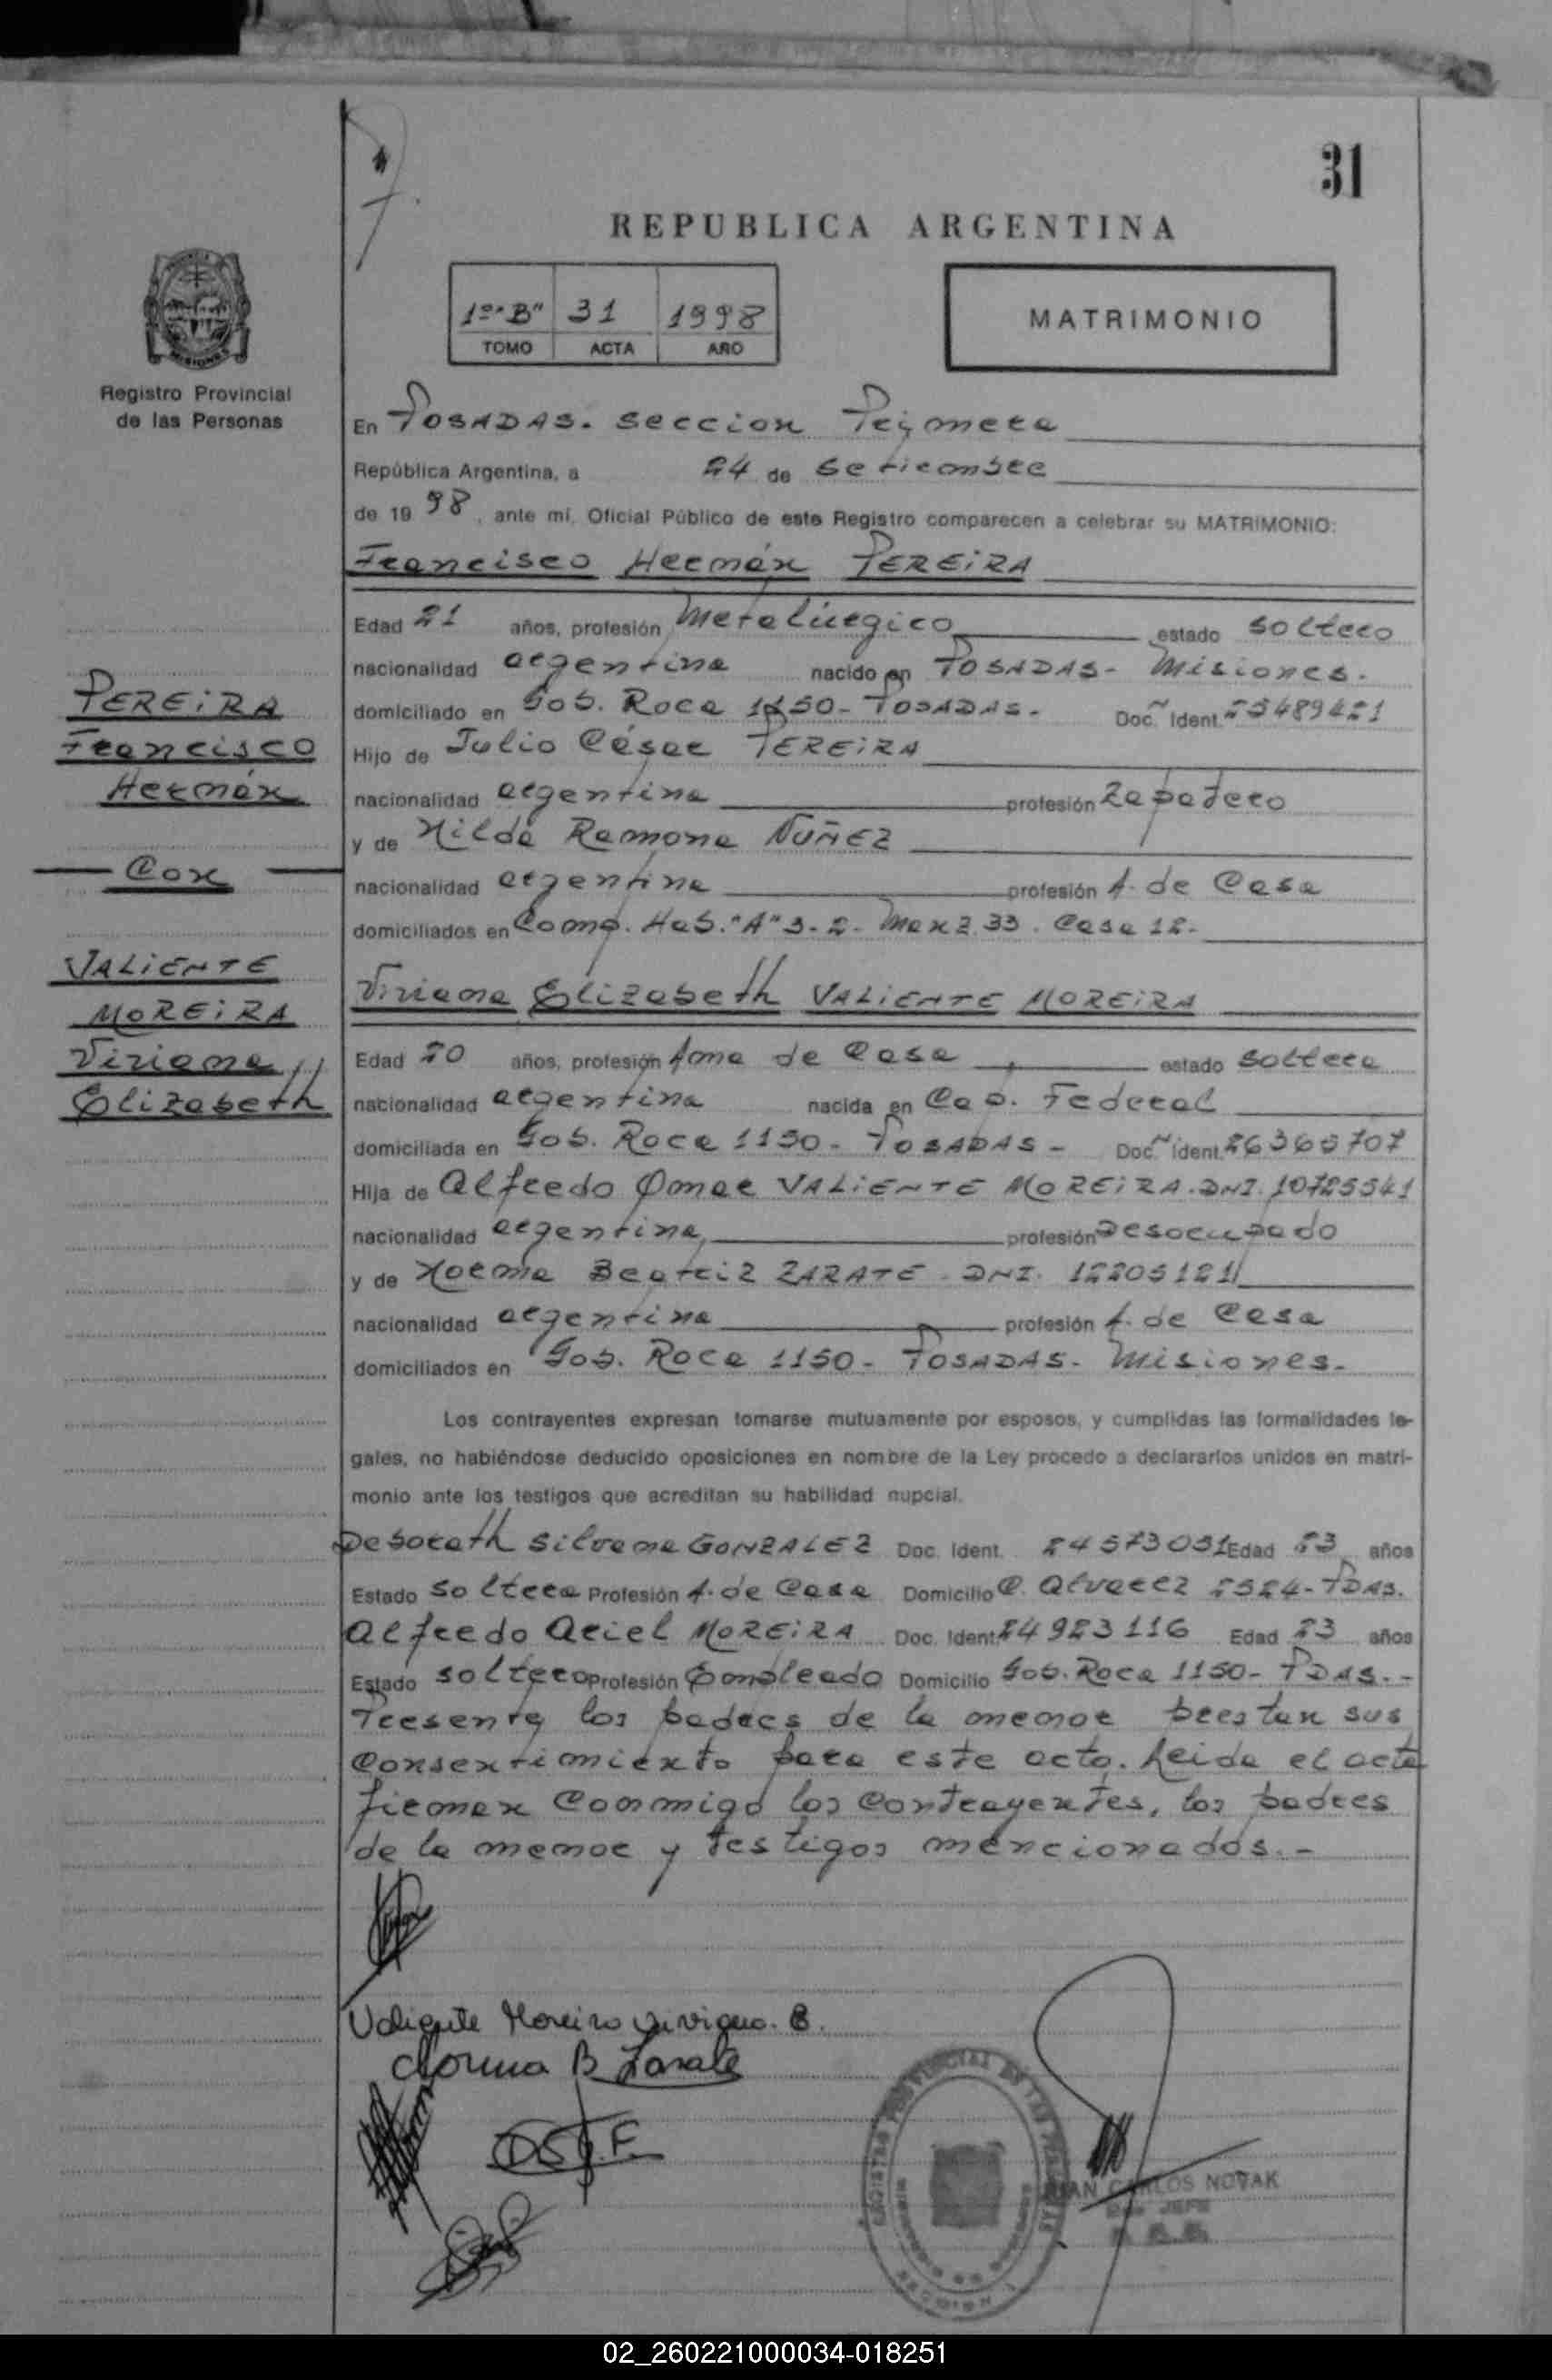 31
REPUBLICA ARGENTINA
1º "B" 31 1998
TOMO ACTA AÑO
MATRIMONIO
MISIONES
Registro Provincial
de las Personas
En POSADAS. seccion Primera
República Argentina, a 24 de setiembre
de 1998, ante mí, Oficial Público de este Registro comparecen a celebrar su MATRIMONIO:
Francisco Hernán PEREiRA
Edad 21 años, profesión Metalúrgico estado soltero
nacionalidad argentina nacido en POSADAS- Misiones.
domiciliado en Gob. Roca 1150- POSADAS. Doc. Ident. 25489421
Hijo de Julio César PEREiRA
nacionalidad argentina profesión Zapatero
y de Nilda Ramona NUÑEZ
nacionalidad argentina profesión A. de Casa
domiciliados en Comp. Hab. "A" 3-2- Manz 33. Casa 12-
PEREiRA
Francisco
Hernán
Con
VALiENTE
MOREiRA
Viviana
Elizabeth
Viviana Elizabeth VALiENTE MOREiRA
Edad 20 años, profesión Ama de Casa estado soltera
nacionalidad argentina nacida en Cap. Federal
domiciliada en Gob. Roca 1150- POSADAS- Doc. Ident. 26360707
Hija de Alfredo Omar VALiENTE MOREiRA. DNI. 10725541
nacionalidad argentina profesión Desocupado
y de Norma Beatriz ZARATE - DNI. 12205121
nacionalidad argentina profesión A. de Casa
domiciliados en Gob. Roca 1150- POSADAS- Misiones.
Los contrayentes expresan tomarse mutuamente por esposos, y cumplidas las formalidades le-
gales, no habiéndose deducido oposiciones en nombre de la Ley procedo a declararlos unidos en matri-
monio ante los testigos que acreditan su habilidad nupcial.
Deborath Silvana GONZALEZ Doc. Ident. 24573031 Edad 23 años
Estado soltera Profesión A. de Casa Domicilio C. Alvarez 2524- PDAS.
Alfredo Ariel MOREiRA Doc. Ident. 24923116 Edad 23 años
Estado soltero Profesión Empleado Domicilio Gob. Roca 1150- PDAS.-
Presente los padres de la menor prestan sus
consentimiento para este acto. Leida el acta
firman conmigo los contrayentes, los padres
de la menor y testigos mencionados.-
Valiente Moreira Viviana. E.
Norma B Zarate
REGISTRO PROVINCIAL DE LAS PERSONAS
JUAN CARLOS NOVAK
JEFE
02_260221000034-018251